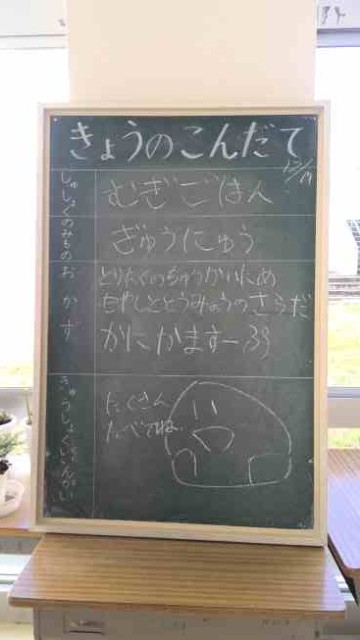 きょうのこんだて
12/19
しゅしょく
むぎごはん
のみもの
ぎゅうにゅう
おかず
とりにくのちゅうかいため
もやしととうみょうのさらだ
かにかますーぷ
きゅうしょくいいんかい
たくさん
たべてね。